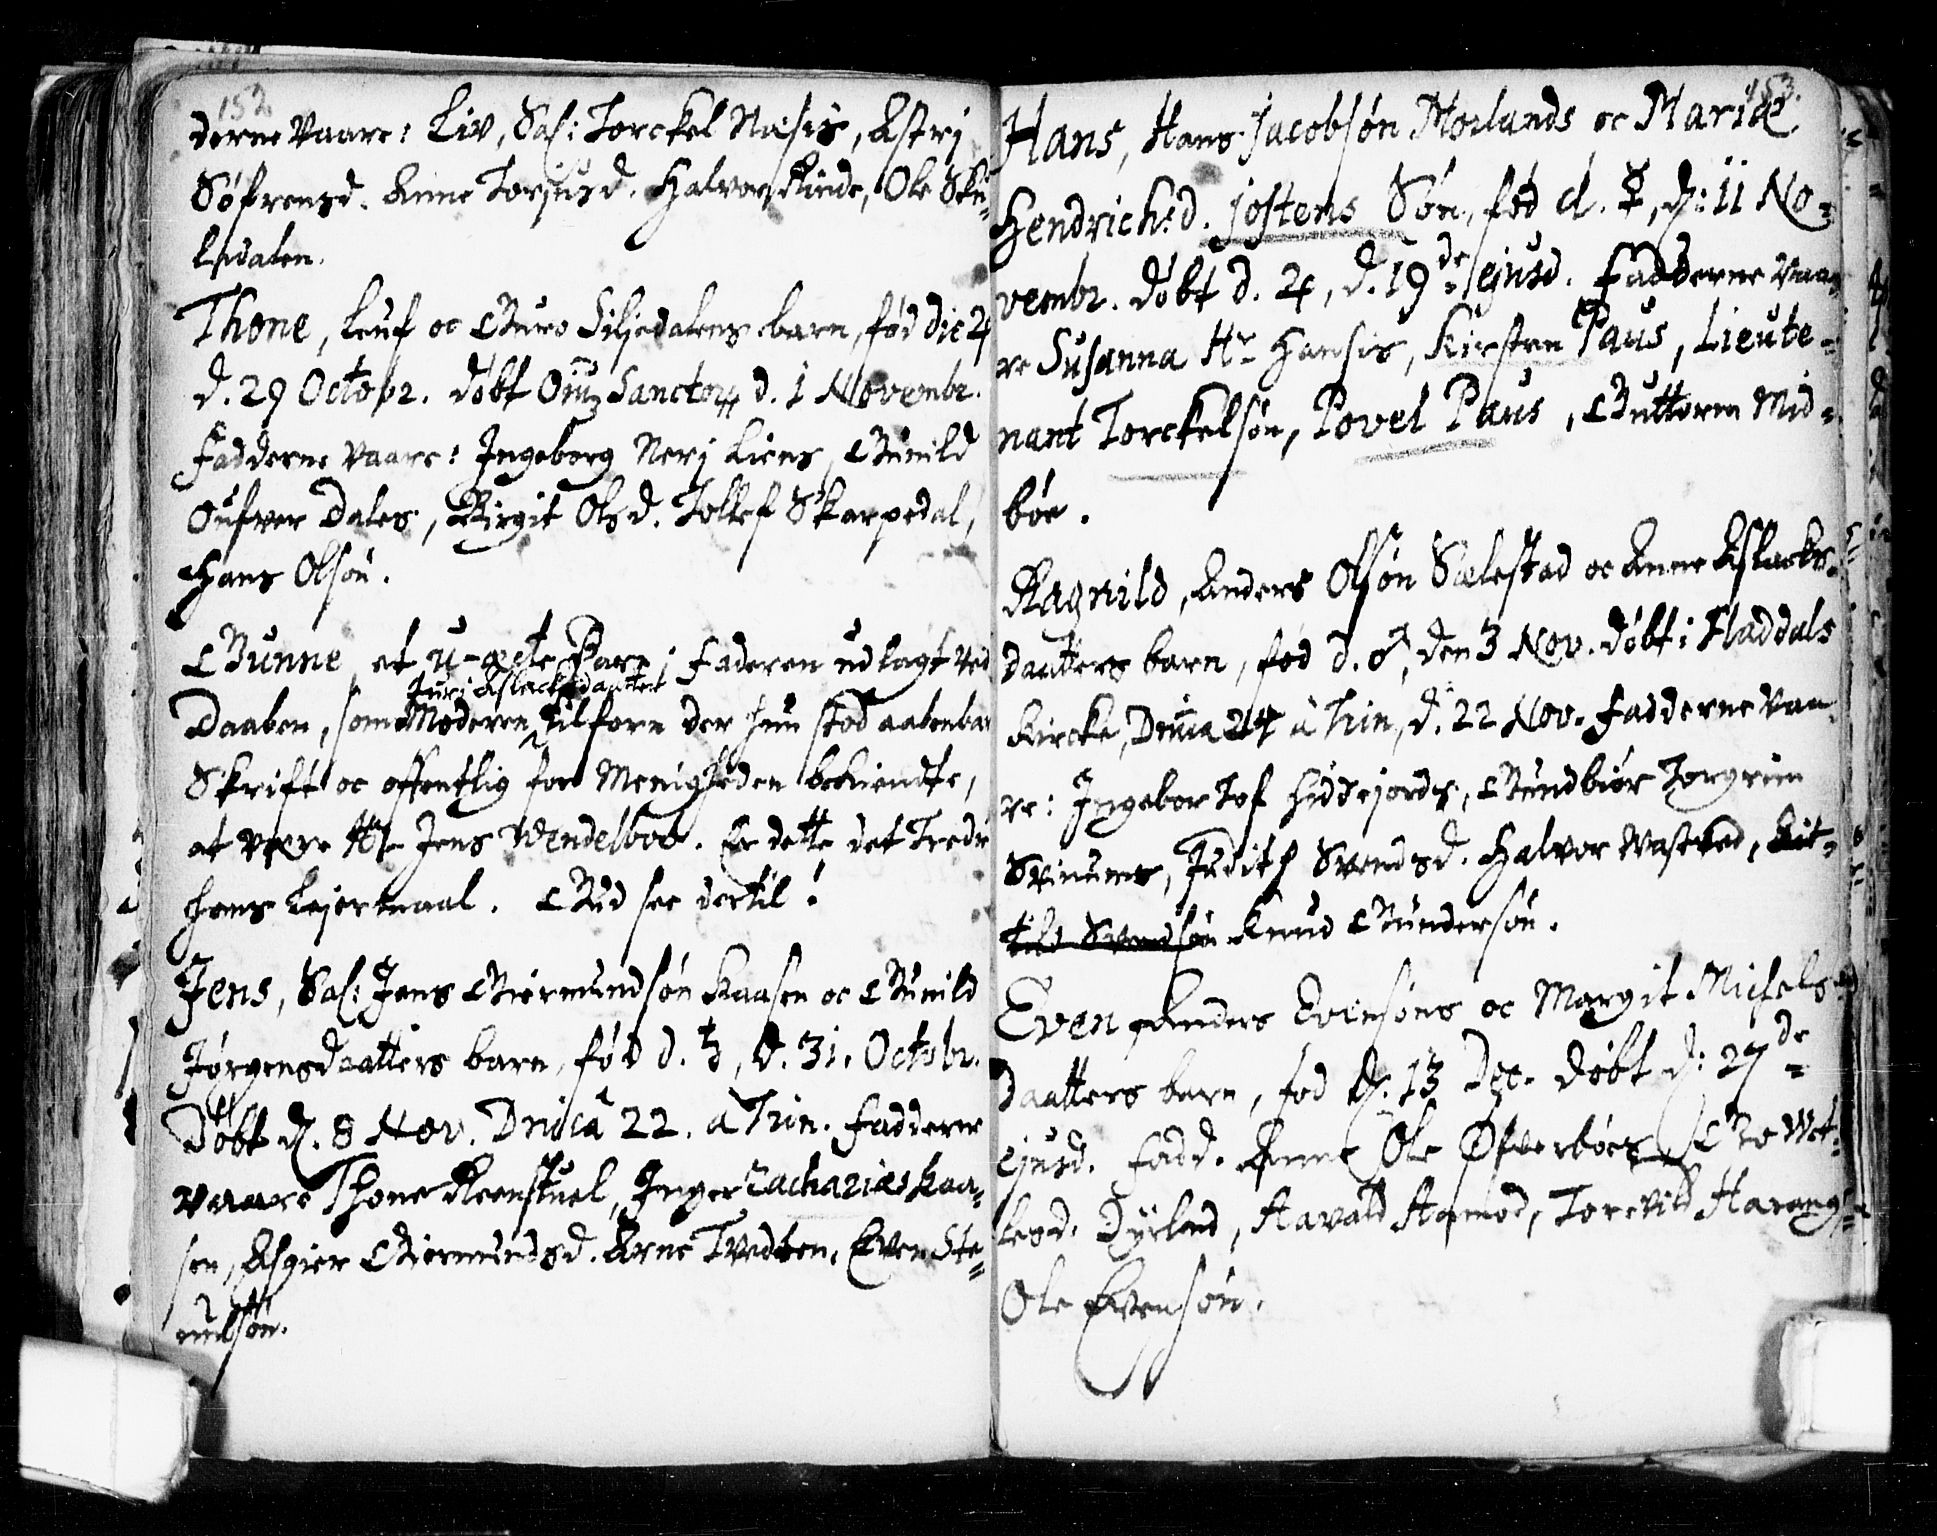 152
derne vaare: Liv, Sal: Torckel Næsis, Astrj
Söfrensd. Anne Torjusd. Halvor Kinde, Ole Sku=
lsdalen.
Thone, Leuf oc Guro Siljedalens barn, fød die ♃
d. 29 Octobr. døbt Om̄ Sanctor d. 1 Novembr.
Fadderne vaare: Ingeborg Nerj Liens, Gunild
Oufver Dales, Birgit Olsd. Tollef Skarpedal,
Hans Olsøn.
Gunne et u-ægte Barn, Faderen udlagt ved
Jurj Aslacksdaatter
Daaben, som Moderen tilforn der hun stod aabenbar
Skrift oc offentlig for Menigheden bekiendte,
at være Hr Jens Wendelboe. Er dette det Tredie
hans Lejermaal. Gud see dertil!
Jens, Sal: Jens Giermundsøn Kaasen oc Gunild
Jørgensdaatters barn, fød d. ♄, d. 31. Octobr.
Døbt d. 8 Nov. Dnicâ 22. à Trin. Fadderne
vaare Thone Reenskuel, Inger Zacharias Kaa=
sen, Asgier Giermundsd. Arne Tvedten, Even Ste=
nulsøn.
153.
Hans, Hans Jacobsøn Morlands oc Mariæ
Hendrichsd. Jostens Søn, fød d. ☿, d: 11 No=
vembr. døbt d. ♃, d. 19de ejusd. Fadderne vaa=
re Susanna Hr Hansis, Kirsten Paus, Lieute=
nant Torckelsøn, Povel Paus, Guttorm Mid=
böe.
Ragnild, Anders Olsøn Sælestad oc Anne Aslacks=
daatters barn, fød d. ♂, den 3 Nov. døbt i Fladdals
Kircke, Dnica 24 à Trin, d. 22 Nov. Fadderne vaa=
re: Ingebor Tof Hiddejords, Gundbiør Torgrim
Svinums, Judith Svendsd. Halvor Wastved, Kit=
tild Svendsøn Knud Gundersøn.
Even Anders Evensøns oc Margit Michels=
daatters barn, fød d. 13 Dec. døbt d: 27de
ejusd. Fadd. Anne Ole Øfverbøes, Gro Wet=
lesd. Dyrland, Havald Hamod, Torckild Harang
Ole Evensøn.